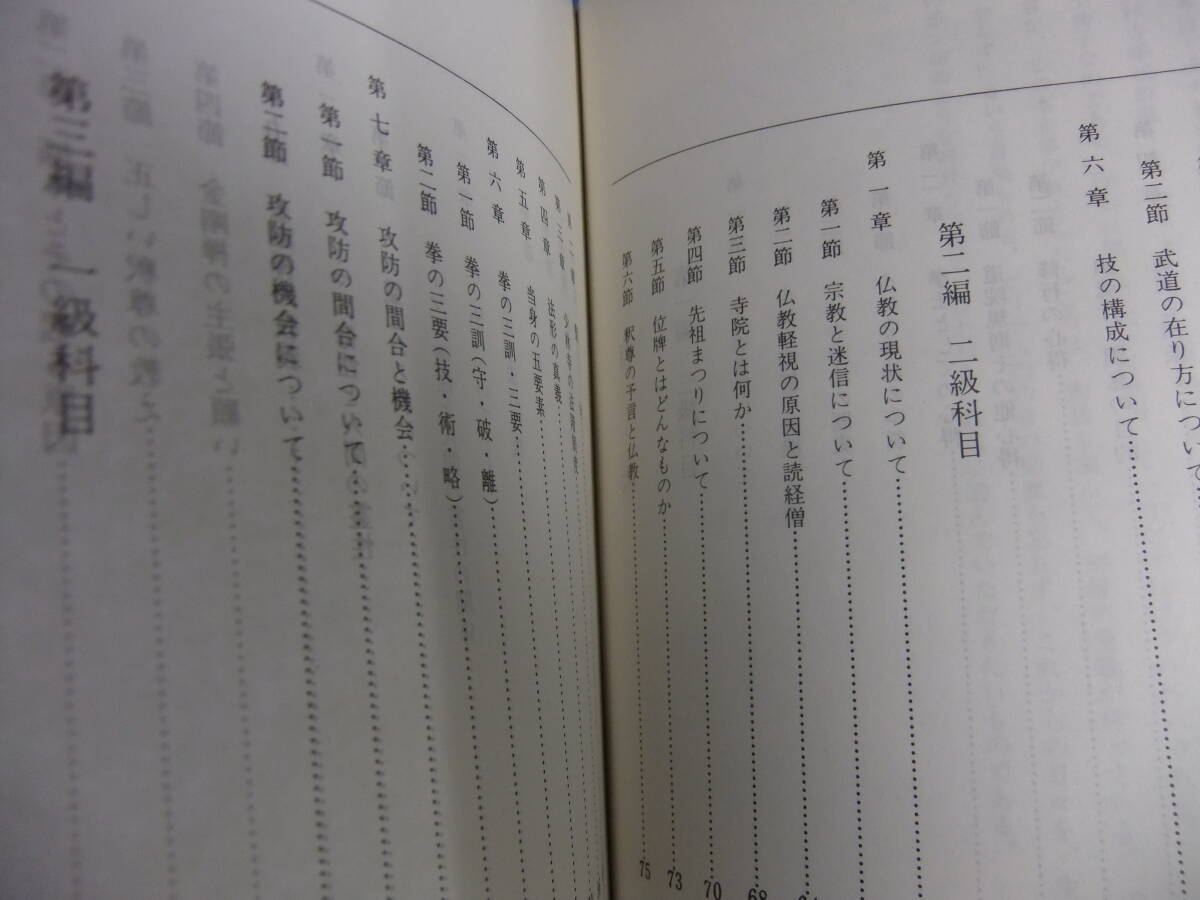 第二節　武道の在り方について
第六章　技の構成について
第二編　二級科目
第一章　仏教の現状について
第一節　宗教と迷信について
第二節　仏教軽視の原因と読経僧
第三節　寺院とは何か 68
第四節　先祖まつりについて 70
第五節　位牌とはどんなものか 73
第六節　釈尊の予言と仏教 75
第三章　少林寺の法階制度
第四章　法形の真義
第五章　当身の五要素
第六章　拳の三訓・三要
第一節　拳の三訓（守・破・離）
第二節　拳の三要（技・術・略）
第七章　攻防の間合と機会
第一節　攻防の間合について
第二節　攻防の機会について
第三編　一級科目